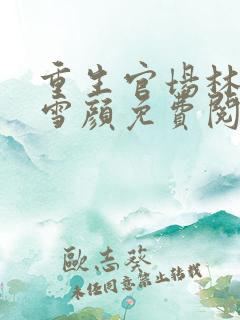 重生官場林
雪顏免費閱
歐志葵
未任同意禁止转载